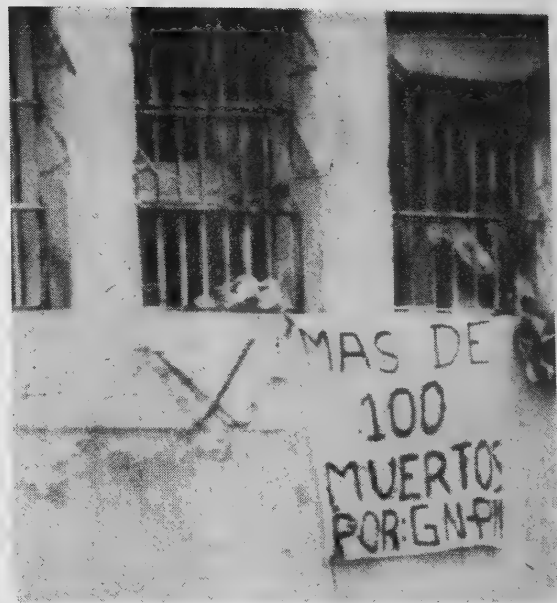 MAS DE
100
MUERTOS
POR:GN-PM